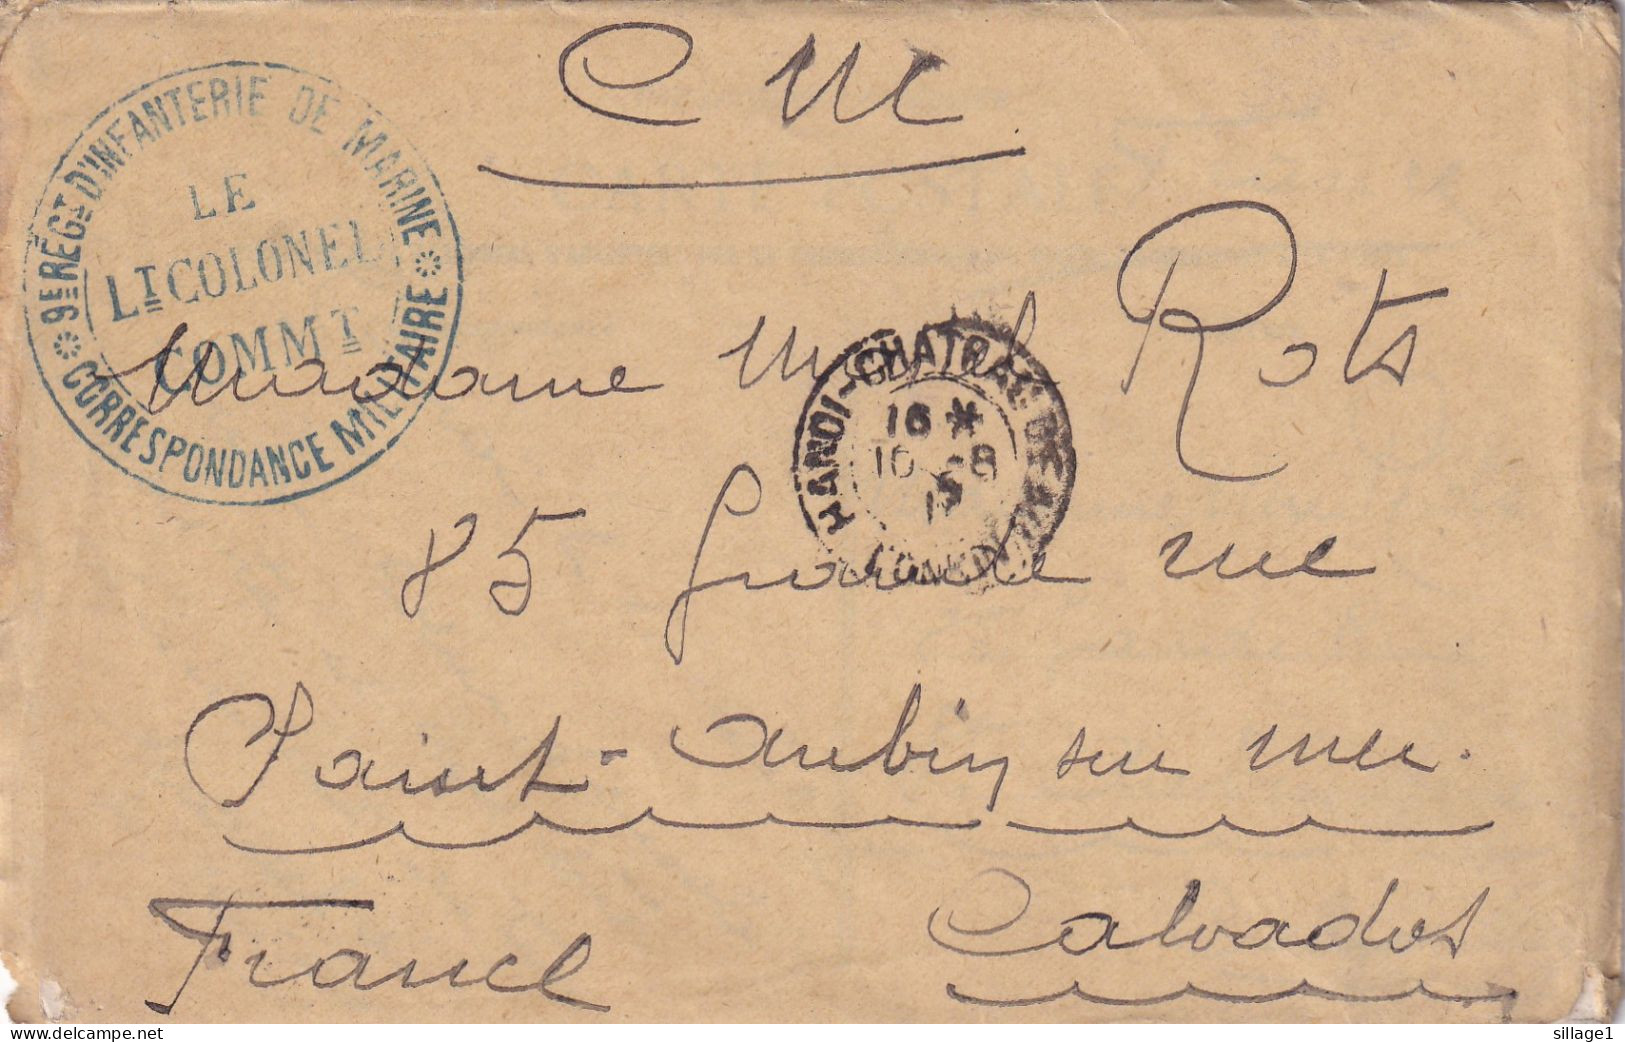 C M
9E RÉGT D'INFANTERIE DE MARINE
LE
LT COLONEL
COMMT
CORRESPONDANCE MILITAIRE
Madame Rots
HANOI-CHATRAIN
16 *
10 -8
TONKIN
85 Grande rue
Saint-Aubin sur mer.
Calvados
France
www.delcampe.net
sillage1